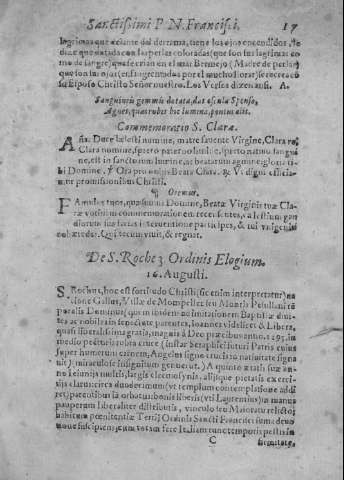 Sanctissimi P. N. Francisci. 17
lagrimas que delante del derrama, tiene los ojos encendidos, se
dize que dotada con las perlas coloradas (que son sus lagrimas co-
mo de sangre) que se crian en el mar Bermejo (Madre de perlas)
que son sus ojos (ensangrentados por el mucho llorar)
su Esposo Christo Señor nuestro. Los Versos dizen assi. A.
Sanguineis gemmis dotata, dat oscula Sponso,
Agnes, quas rubet hic lumina, pontus alit.
Commemoratio S. Claræ.
Aña. Duce cælesti numine, matre favente Virgine, Clara
Claro nomine, spreto patre nobili
ne, est in sanctorum lumine, ac beatarum agmine gloria ti-
bi Domine. ℣ Ora pro nobis Beata Clara. ℟ Vt digni efficia-
mur promissionibus Christi.
Oremus.
Famulos tuos, quæsumus Domine, Beatæ Virginis tuæ Cla-
ræ votivam commemorationem recensentes, cælestium gau-
diorum sua facias interventione participes, & tui Vnigeniti
cohæredes. Qui tecum vivit, & regnat.
De S. Roche 3 Ordinis Elogium.
16. Augusti.
S. Rochus, hoc est fortitudo Christi (sic enim interpretatur) na-
tione Gallus, Villæ de Mompeller seu Montis Pesullani te
poralis Dominus (qui m ibidem ad imitationem Baptistæ divi-
tes ac nobiles in senectute parentes, Ioannes videlicet & Libera,
quasi illius omnia gratis, magnis à Deo præcibus anno. 1295. in
medio pectoris rubra cruce (instar Seraphisci futuri Patris cuius
super humerum carnem, Angelus signo crucis in nativitate signa-
vit) miraculose insignitum genuerut.) A quinto ætatis suæ an-
no ieiunijs multis, largis eleemosynis, alijsque pietatis exerci-
tijs clarus: circa duodecimum (ut templum contemplatione addi-
ret) parentibus iã orbatus: bonis liberis (uti Laurentius) in manus
pauperum liberaliter distributis, vinculo seu Maioratu relicto;
habitum pœnitentiæ Tertij Ordinis Sancti Francisci summa devo-
tione suscipiens, cum votum fecit. Iam tunc temporis pestis in
C firmitate,